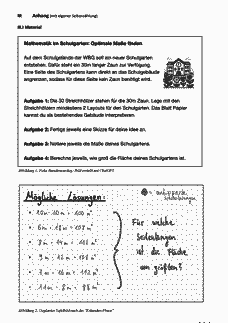 III Anhang (mit eigener Seitenzählung)
III.I Material
Mathematik im Schulgarten: Optimale Maße finden
Auf dem Schulgelände der WBG soll ein neuer Schulgarten
entstehen. Dafür steht ein 30m langer Zaun zur Verfügung.
Eine Seite des Schulgartens kann direkt an das Schulgebäude
angrenzen, sodass für diese Seite kein Zaun benötigt wird.
Aufgabe 1: Die 30 Streichhölzer stehen für die 30m Zaun. Lege mit den
Streichhölzern mindestens 2 Layouts für den Schulgarten. Das Blatt Papier
kannst du als bestehendes Gebäude interpretieren.
Aufgabe 2: Fertige jeweils eine Skizze für deine Idee an.
Aufgabe 3: Notiere jeweils die Maße deines Schulgartens.
Aufgabe 4: Berechne jeweils, wie groß die Fläche deines Schulgartens ist.
Mögliche Lösungen:
10m · 10m = 100 m²
6m · 18m = 108 m²
8m · 14m = 112 m²
9m · 12m = 108 m²
11m · 8m = 88 m²
Für welche
Seitenlängen
ist die Fläche
am größten?